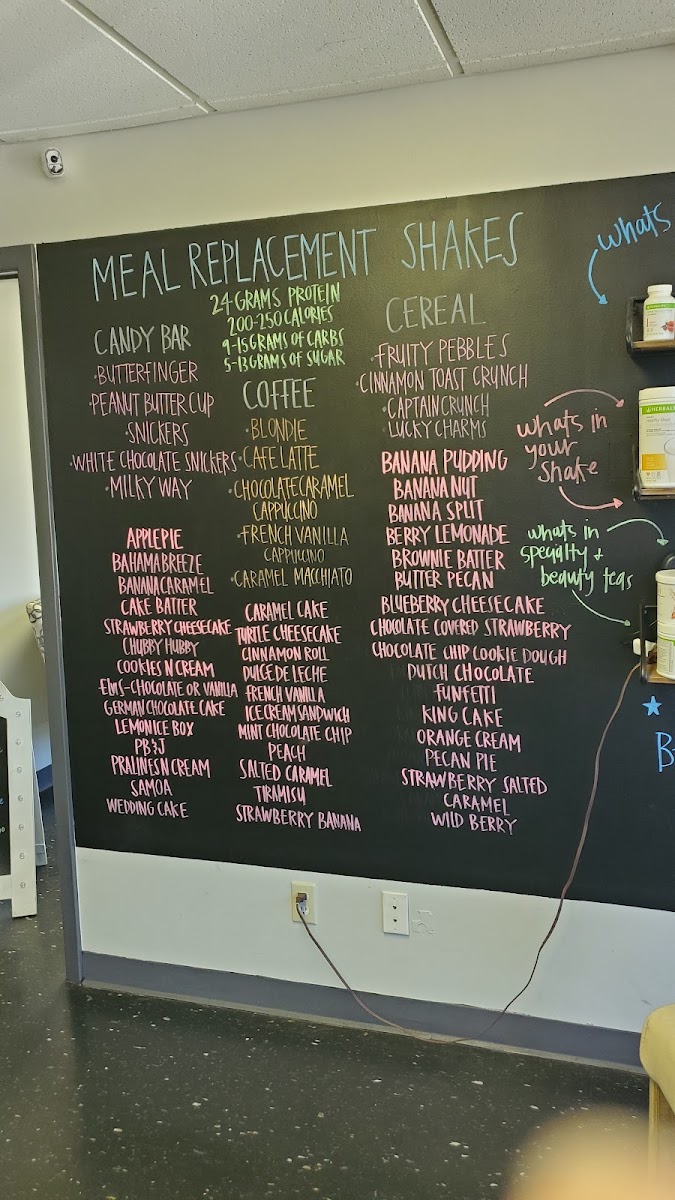 MEAL REPLACEMENT SHAKES
24 GRAMS PROTEIN
200-250 CALORIES
9-15 GRAMS OF CARBS
5-13 GRAMS OF SUGAR
CANDY BAR
·BUTTERFINGER
·PEANUT BUTTER CUP
·SNICKERS
·WHITE CHOCOLATE SNICKERS
·MILKY WAY
APPLE PIE
BAHAMA BREEZE
BANANA CARAMEL
CAKE BATTER
STRAWBERRY CHEESECAKE
CHUBBY HUBBY
COOKIES N CREAM
ELVIS-CHOCOLATE OR VANILLA
GERMAN CHOCOLATE CAKE
LEMON ICE BOX
PB&J
PRALINES N CREAM
SAMOA
WEDDING CAKE
COFFEE
·BLONDIE
·CAFE LATTE
·CHOCOLATE CARAMEL
CAPPUCCINO
·FRENCH VANILLA
CAPPUCCINO
·CARAMEL MACCHIATO
CARAMEL CAKE
TURTLE CHEESECAKE
CINNAMON ROLL
DULCE DE LECHE
FRENCH VANILLA
ICE CREAM SANDWICH
MINT CHOCOLATE CHIP
PEACH
SALTED CARAMEL
TIRAMISU
STRAWBERRY BANANA
CEREAL
·FRUITY PEBBLES
·CINNAMON TOAST CRUNCH
·CAPTAIN CRUNCH
·LUCKY CHARMS
BANANA PUDDING
BANANA NUT
BANANA SPLIT
BERRY LEMONADE
BROWNIE BATTER
BUTTER PECAN
BLUEBERRY CHEESECAKE
CHOCOLATE COVERED STRAWBERRY
CHOCOLATE CHIP COOKIE DOUGH
DUTCH CHOCOLATE
FUNFETTI
KING CAKE
ORANGE CREAM
PECAN PIE
STRAWBERRY SALTED
CARAMEL
WILD BERRY
whats
whats in
your
shake
HERBAL
whats in
specialty +
beauty teas
B